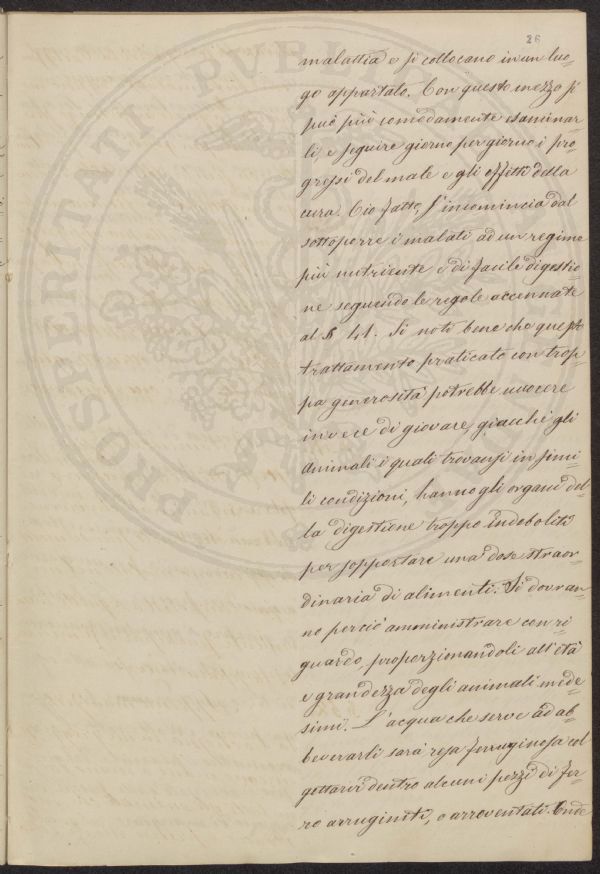 26
malattia e si collocano in un luo=
go appartato. Con questo mezzo si
può più comodamente esaminar=
li, e seguire giorno per giorno i pro=
gressi del male e gli effetti della
cura. Ciò fatto, s'incomincia dal
sottoporre i malati ad un regime
più nutriente e di facile digestio=
ne seguendo le regole accennate
al § 41. Si noti bene che questo
trattamento praticato con trop=
pa generosità potrebbe nuocere
invece di giovare, giacchè gli
animali i quali trovansi in simi=
li condizioni, hanno gli organi del=
la digestione troppo indeboliti
per sopportare una dose straor=
dinaria di alimenti. Si dovran=
no perciò amministrare con ri=
guardo, proporzionandoli all'età
e grandezza degli animali mede=
simi. L'acqua che serve ad ab=
beverarli sarà resa ferruginosa col
gettarvi dentro alcuni pezzi di fer=
ro arruginiti, o arroventati. Onde
PROSPERITATI PUBLICAE